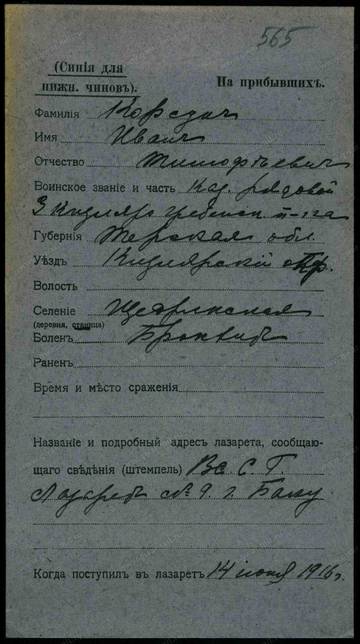 565
(Синія для
нижн. чиновъ).
На прибывшихъ.
Фамилія
Имя Иванъ
Отчество Тимофѣевичъ
Воинское званіе и часть Каз. рядовой
3 Кизляр гребенск п-ка
Губернія Терская обл.
Уѣздъ Кизлярскій отд.
Волость
Селеніе Щедринская
(деревня, станица)
Боленъ Бронхитъ
Раненъ
Время и мѣсто сраженія
Названіе и подробный адресъ лазарета, сообщаю-
щаго свѣдѣнія (штемпель) Вс С. Г.
Лазаретъ № 9. г. Баку
Когда поступилъ въ лазаретъ 14 іюня 1916 г.